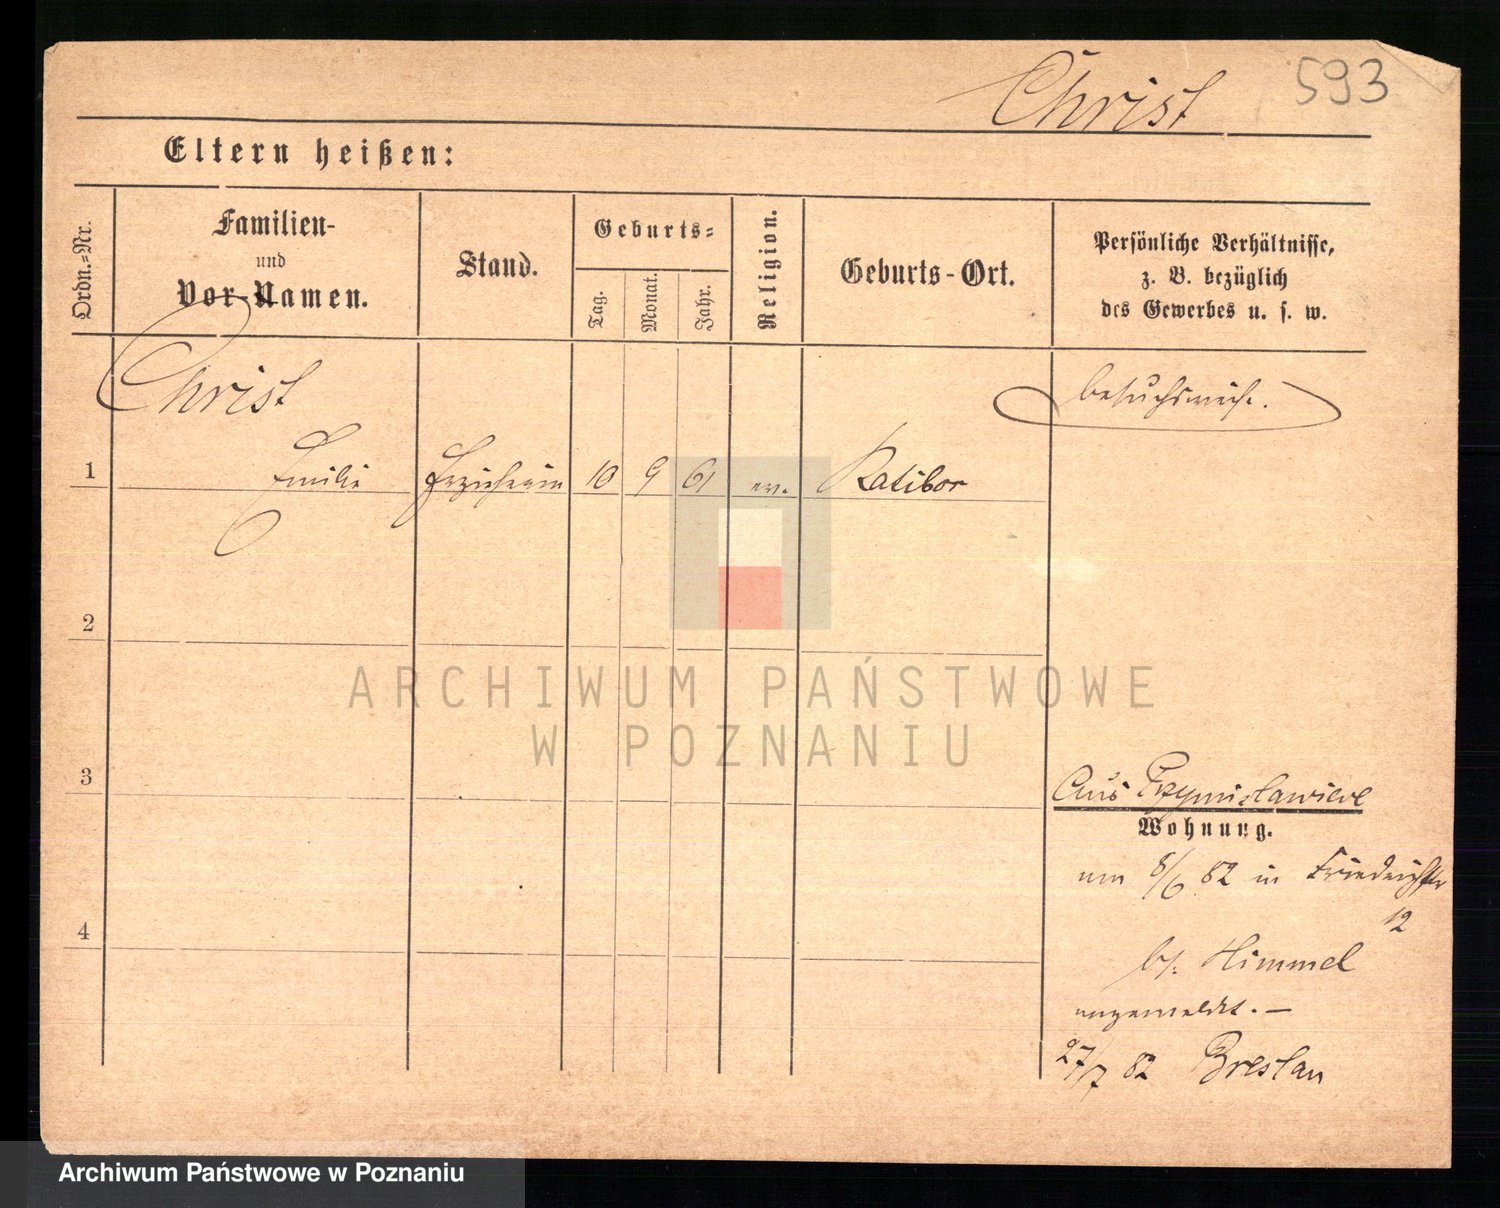 Christ 593
Eltern heißen:
Ordn.=Nr.
Familien-
und
Vor-Namen.
Stand.
Geburts=
Tag.
Monat.
Jahr.
Religion.
Geburts-Ort.
Persönliche Verhältnisse,
z. B. bezüglich
des Gewerbes u. s. w.
Christ
besuchsweise.
1 Emilie Erzieherin 10 9 61 ev. Ratibor
2
3
4
Aus
Wohnung.
am 8/6 82 in Friedrichstr
12
b/. Himmel
angemeldet. —
27/7 82 Breslau
ARCHIWUM PAŃSTWOWE
W POZNANIU
Archiwum Państwowe w Poznaniu